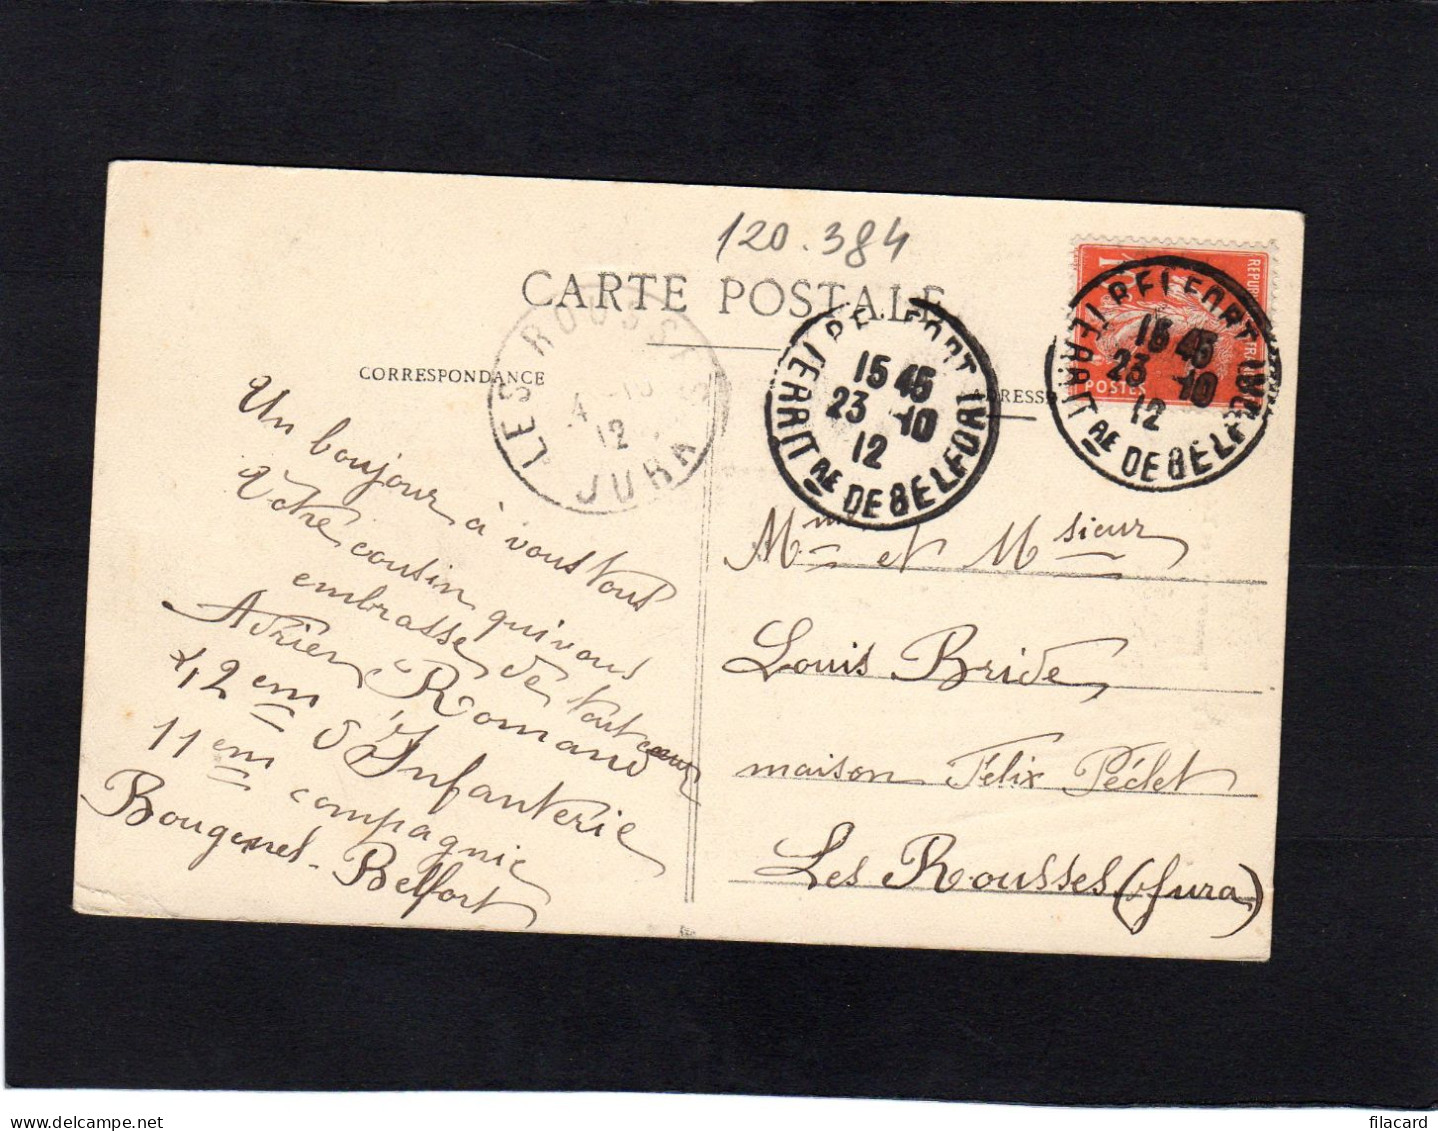 120.384
CARTE POSTALE
CORRESPONDANCE
ADRESSE
LES ROUSSES
12
JURA
BELFORT
15 45
23 -10
12
TERRIT RE DE BELFORT
REPUB
FRAN
POSTES
BELFORT
15 45
23 -10
12
TERRIT RE DE BELFORT
Un bonjour à vous tous
Votre cousin qui vous
embrasse de tout cœur
Adrien Romand
42 em d'Infanterie
11 em compagnie
Bougenel-Belfort
Mme et Msieur
Louis Bride
maison Félix Péclet
Les Rousses (Jura)
filacard.com